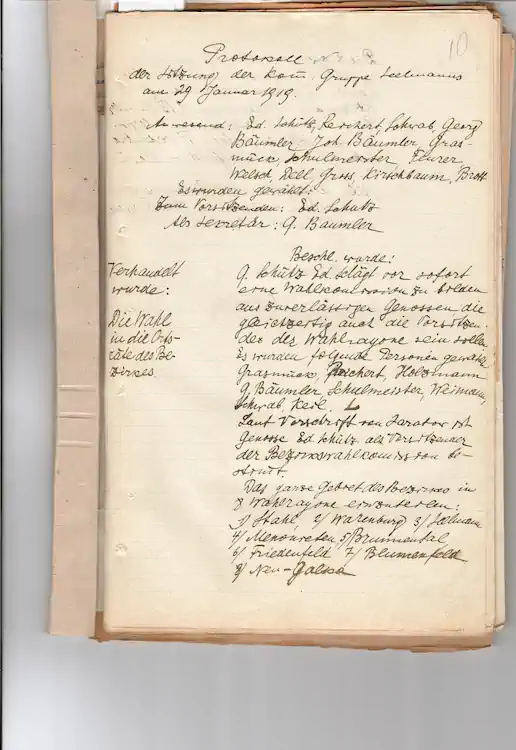 10
Protokoll
der Sitzung der Kom. Gruppe Seelmanns
am 29 Januar 1919.
Anwesend: Ed. Schütz, Reichert, Schwab, Georg
Bäumler, Joh. Bäumler, Gras-
mück, Schulmeister, Ehrer
Welsch, Dell, Gross, Kirschbaum, Brott
Es wurden gewählt:
Zum Vorsitzenden: Ed. Schütz
Als Secretär: G. Bäumler
Beschl. wurde:
Verhandelt
wurde:
Die Wahl
in die Orts-
räte des Be-
zirkes
G. Schütz Ed. schlägt vor sofort
eine Wahlkommission zu bilden
aus zuverlässigen Genossen die
gleichzeitig auch die Vorsitzen-
der der Wahlrayone sein sollen
Es wurden folgende Personen gewählt
Grasmück, Reichert, Holzmann
G. Bäumler, Schulmeister, Weimann,
Schwab, Keil.
Laut Vorschrift von Saratow ist
Genosse Ed Schütz als Vorsitzender
der Bezirkswahlkommission be-
stimmt.
Das ganze Gebiet des Bezirkes in
8 Wahlrayone
1/ Stahl, 2/ Warenburg 3/ Seelmann
4/ 5/ Brunnental
6/ Friedenfeld 7/ Blumenfeld
8/ Neu-Galka